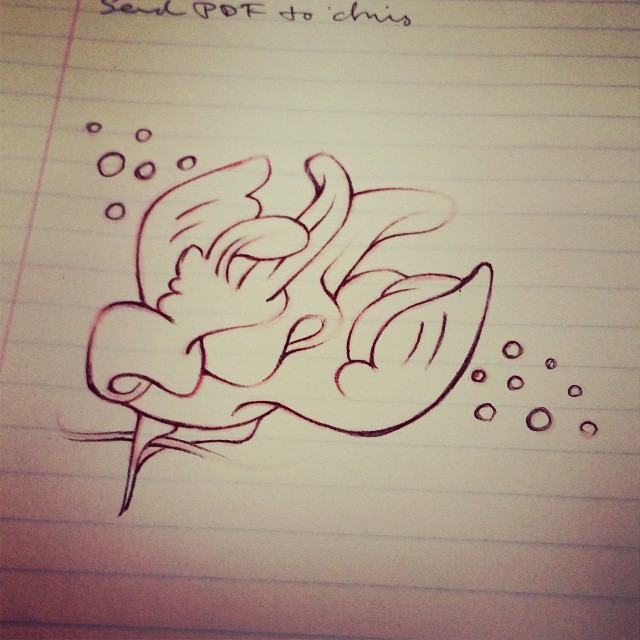 Send PDF to chris